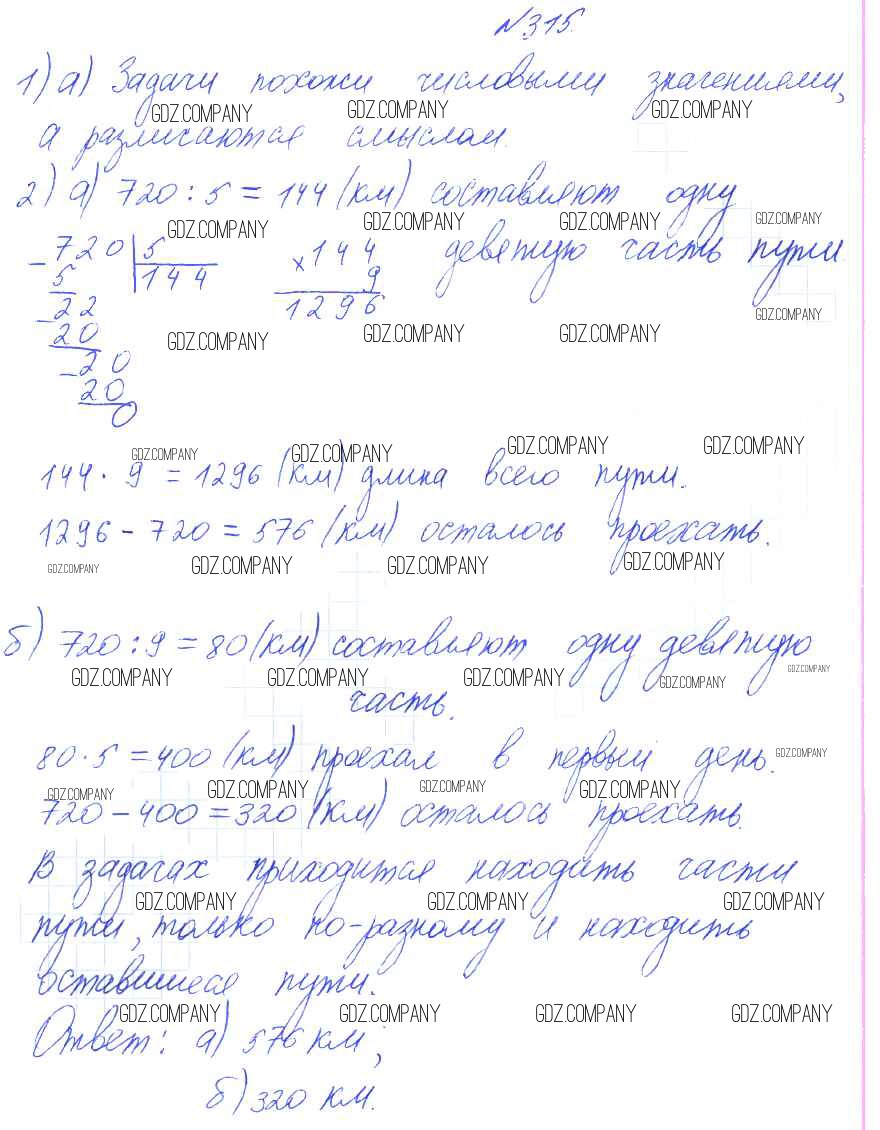 №315.
1) а) Задачи похожи числовыми значениями,
GDZ.COMPANY GDZ.COMPANY GDZ.COMPANY
а различаются смыслом.
2) а) 720 : 5 = 144 (км) составляют одну
GDZ.COMPANY GDZ.COMPANY GDZ.COMPANY GDZ.COMPANY
девятую часть пути.
- 720 | 5 × 144
5 144 9
- 22 1296
GDZ.COMPANY
20
GDZ.COMPANY GDZ.COMPANY GDZ.COMPANY
- 20
20
0
GDZ.COMPANY GDZ.COMPANY GDZ.COMPANY GDZ.COMPANY
144 · 9 = 1296 (км) длина всего пути.
1296 - 720 = 576 (км) осталось проехать.
GDZ.COMPANY GDZ.COMPANY GDZ.COMPANY GDZ.COMPANY
б) 720 : 9 = 80 (км) составляют одну девятую
GDZ.COMPANY GDZ.COMPANY GDZ.COMPANY GDZ.COMPANY GDZ.COMPANY
часть.
80 · 5 = 400 (км) проехал в первый день.
GDZ.COMPANY
GDZ.COMPANY GDZ.COMPANY GDZ.COMPANY GDZ.COMPANY
720 - 400 = 320 (км) осталось проехать.
В задачах приходится находить части
GDZ.COMPANY GDZ.COMPANY GDZ.COMPANY
пути, только по-разному и находить
оставшиеся пути.
GDZ.COMPANY GDZ.COMPANY GDZ.COMPANY GDZ.COMPANY
Ответ: а) 576 км;
б) 320 км.